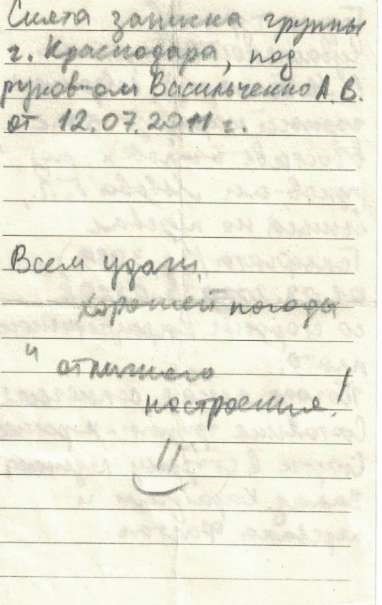 Снята записка группы
г. Краснодара, под
руков-ом Васильченко А. В.
от 12.07.2011 г.
Всем удачи,
хорошей погоды
и отличного
настроения!